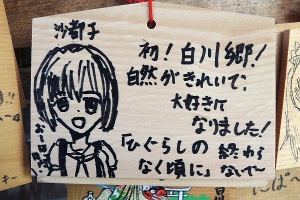 沙都子
初！白川郷！
自然がきれいで、
大好きに
なりました！
「ひぐらしの
なく頃に」
終わら
ないで〜
にぱ〜